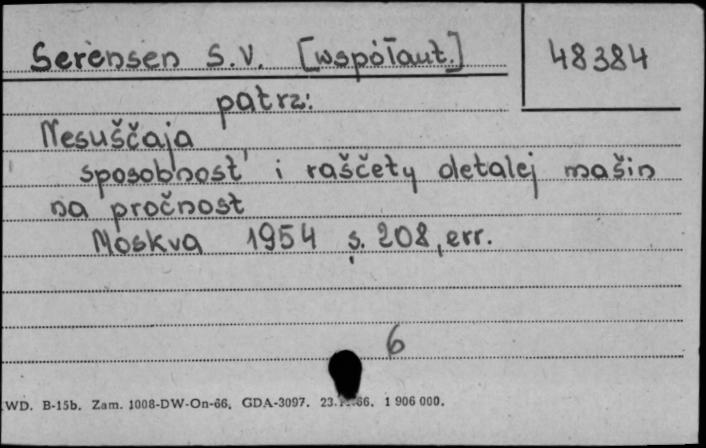 Serensen S.V. [współaut.]
48384
patrz:
Nesuščaja
sposobnost' i raščety detalej mašin
na pročnost
Moskva 1954 s. 208, err.
6
WD. B-15b. Zam. 1008-DW-On-66. GDA-3097. 1 906 000.